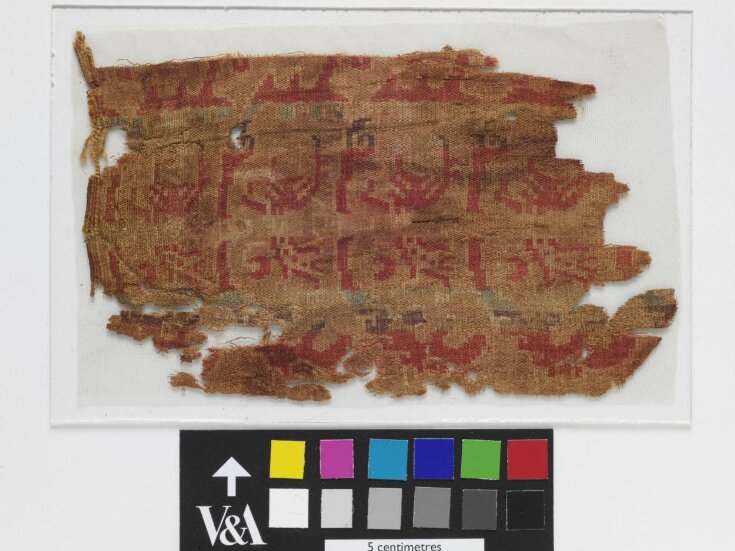 V&A
5 centimetres